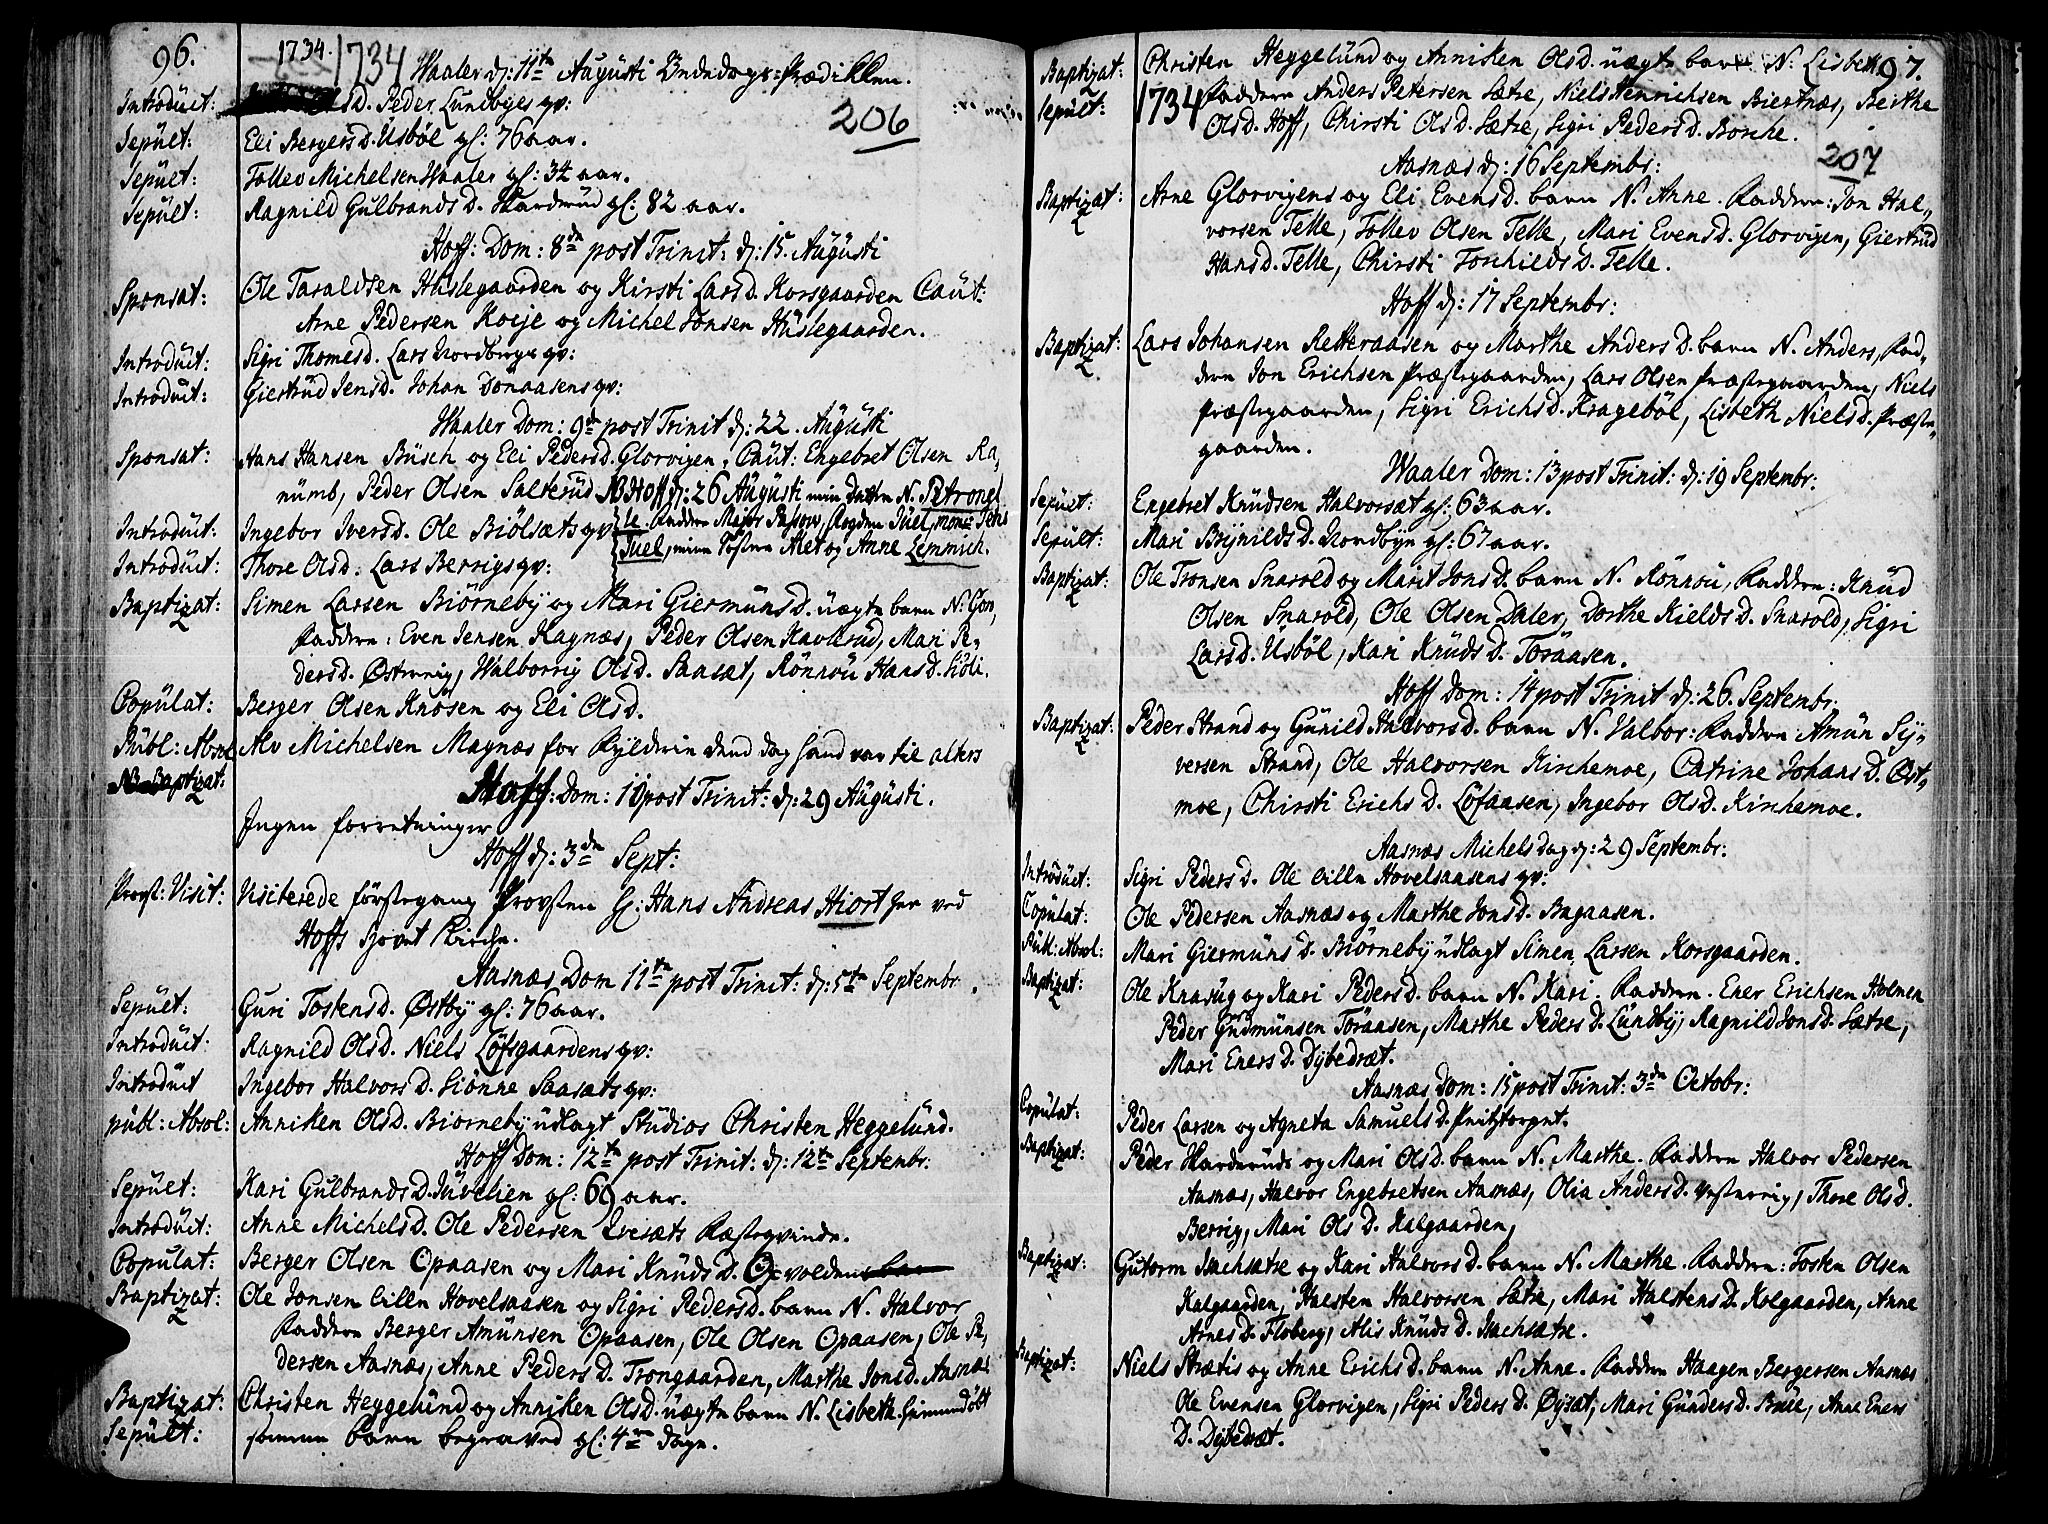 96.
1734.
1734
Waaler d: 11te Augusti Bededags-Prædikken.
206
Introduct: Olsd. Peder Lundbyes qv:
Sepult: Eli Bergersd. Usböl gl: 76 aar.
Sepult: Tollev Michelsen Waaler gl: 34 aar.
Sepult: Ragnild Gulbrands D. Harderud gl: 82 aar.
Hoff: Dom: 8de post Trinit: d: 15. Augusti
Sponsat: Ole Taraldsen Huslegaarden og Kirsti Larsd. Korsgaarden Caut:
Arne Pedersen Koeje og Michel Jonsen Huslegaarden.
Introduct: Sigri Thomesd. Lars Nordbyes qv:
Introduct: Giertrud Jensd. Johan Donaasens qv:
Waaler Dom: 9de post Trinit d: 22. Augusti
Sponsat: Hans Hansen Busch og Eli Pedersd. Glorvigen, Caut: Engebret Olsen Ra,
numb, Peder Olsen Salterud NB Hoff d: 26 Augusti min Datter N. Petronel
Introduct: Ingebor Iversd. Ole Biölsæts qv: le. Faddere Major Passow, Frogden Juel, mons: Jens
Introduct: Thore Olsd. Lars Berrigs qv: Juel, mine Söstre Alet og Anne Lemmich.
Baptizat: Simen Larsen Biörneby og Mari Giermuns D. uægte barn N: Gon,
Faddere: Even Jensen Kagnæs, Peder Olsen Kavlerud, Mari Pe-
dersd. Österrig, Walborrig Olsd. Saasæt, Rönnou Hans D. Lidli.
Copulat: Berger Olsen Knosen og Eli Olsd.
Publ: Absol Alv Michelsen Magnæs for Fylderie dend dag hand var til alters
NB Baptizat: Hoff: Dom: 10 post Trinit: d: 29 Augusti.
Ingen forretninger
Hoff d: 3de Sept:
Provst: Visit: Visiterede förstegang Provsten Hr: Hans Andreas Hiort her ved
Hoffs Hovet Kirche.
Aasnæs Dom 11te post Trinit: d: 5te Septembr.
Sepult: Guri Tostensd. Østby gl: 76 aar.
Introduct: Ragnild Olsd. Niels Löfsgaardens qv:
Introduct Ingebor Halvors D. Siönne Saasats qv:
publ: Absol: Anniken Olsd. Biörneby udlagt Studios Christen Heggelund.
Hoff Dom: 12te post Trinit: d: 12te Septembr:
Sepult: Kari Gulbrands D. Juvelien gl: 69 aar.
Introduct: Anne Michelsd. Ole Pedersen Kvesæts Fæstqvinde.
Copulat: Berger Olsen Opaasen og Mari Knuds D. volden
Baptizat: Ole Jonsen lille Hovelsaasen og Sigri Pedersd. barn N. Halvor
Faddere Berger Amunsen Opaasen, Ole Olsen Opaasen, Ole Pe,
dersen Aasnæs, Anne Peders D. Trongaarden, Marthe Jonsd. Aasnæs
Baptizat: Christen Heggelund og Anniken Olsd. uægte barn N. Lisbeth hiemmedöbt
Sepult: samme barn begraved gl: 4re dage.
97.
Baptizat: Christen Heggelund og Anniken Olsd. uægte barn N: Lisbeth
Sepult: 1734 Faddere Anders Petersen Sætre, Niels Henrichsen Biertnæs, Berthe
Olsd. Hoff, Chirsti Olsd. Sætre, Sigri Pedersd. Borche.
207
Aasnæs d: 16 Septembr:
Baptizat: Arne Glorvigens og Eli Evensd. barn N. Anne. Faddere: Jon Hal,
vorsen Telle, Tollev Olsen Telle, Mari Evensd. Glorvigen, Giertrud
Hansd. Telle, Chirsti Torchilds D. Telle.
Hoff d: 17 Septembr:
Baptizat: Lars Johansen Retteraasen og Marthe Anders D. barn N. Anders, Fad,
dere Jon Erichsen Præstegaarden, Lars Olsen Præstegaarden, Niels
Præstegaarden, Sigri Erichs D. Kragebøl, Lisbeth Niels D. Præste,
gaarden.
Waaler Dom: 13 post Trinit: d: 19 Septembr:
Sepult: Engebret Knudsen Halvorsæt gl: 63 aar.
Sepult: Mari Brynilds D. Nordbye gl: 67 aar.
Baptizat: Ole Tronsen Snarold og Marit Jons D. barn N. Rönnou, Faddere: Knud
Olsen Snarold, Ole Olsen Daler, Dorthe Kields D. Snarold, Sigri
Larsd. Usböl, Kari Knuds D. Toraasen.
Hoff Dom: 14 post Trinit d: 26. Septembr:
Baptizat: Peder Strand og Gunild Halvors D. barn N. Valbor: Faddere Amun Sy,
versen Strand, Ole Halvorsen Kirchemoe, Catrine Johans D. Øst,
moe, Chirsti Erichs D. Löfaasen, Ingebor Olsd. Kirchemoe.
Aasnæs Michelsdag d: 29 Septembr:
Introduct: Sigri Peders D. Ole lille Hovelsaasens qv:
Copulat: Ole Pedersen Aasnæs og Marthe Jons D. Bagaasen.
Publ: Absol: Mari Giermuns D. Biörneby udlagt Simen Larsen Korsgaarden.
Baptizat: Ole Knasug og Kari Peders D. barn N. Kari. Faddere. Ener Erichsen Holmen
Peder Gudmunsen Toraasen, Marthe Peders D. Lundby, Ragnild Jonsd. Sætre,
Mari Eners D. Dybedræt.
Aasnæs Dom: 15 post Trinit: 3de Octobr:
Copulat: Peder Larsen og Agneta Samuelsd. Fritztorpet.
Baptizat: Peder Harderuds og Mari Olsd. barn N. Marthe. Faddere Halvor Pedersen
Aasnæs, Halvor Engebretsen Aasnæs, Olia Anders D. Vesterrig, Thore Olsd.
Berrig, Mari Ols D. Kalgaarden,
Baptizat: Gutorm Sachsætre og Kari Halvors D. barn N. Marthe. Faddere: Tosten Olsen
Kalgaarden, Halsten Halvorsen Sætre, Mari Halstens D. Kolgaarden, Anne
Arnes D. Floberg, Alis Knuds D. Sachsætre.
Baptizat: Niels Strætis og Anne Erichs D. barn N. Anne. Faddere Haagen Bergersen Aasnæs
Ole Evensen Glorvigen, Sigri Peders D. Öysæt, Mari Gunders D. Bølle, Anne Eners
D. Dybedræt.